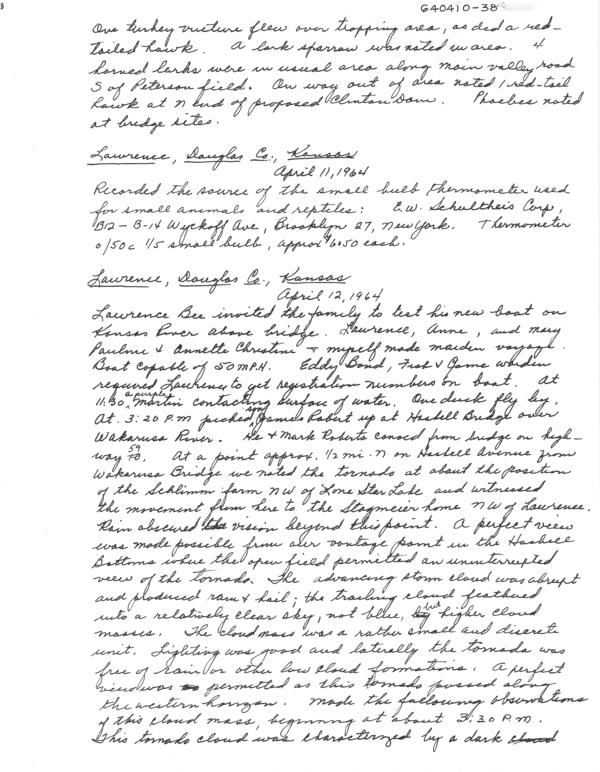 640410-38
One turkey vulture flew over trapping area, as did a red-
tailed hawk. A lark sparrow was noted in area. 4
horned larks were in usual area along main valley road
S of Peterson field. On way out of area noted 1 red-tail
hawk at N end of proposed Clinton Dam. Phoebes noted
at bridge sites.
Lawrence, Douglas Co., Kansas
April 11, 1964
Recorded the source of the small bulb thermometer used
for small animals and reptiles: E.W. Schultheis Corp,
B12-B-14 Wyckoff Ave, Brooklyn 27, New York. Thermometer
0/50c 1/5 small bulb, approx $6.50 each.
Lawrence, Douglas Co., Kansas
April 12, 1964
Lawrence Bee invited the family to test his new boat on
Kansas River above bridge. Lawrence, Anne, and Mary
Pauline & Annette Christine & myself made maiden voyage.
Boat capable of 50 M.P.H. Eddy Bond, Fish & Game warden
required Lawrence to get registration numbers on boat. At
11:30 a purple martin contacting surface of water. One duck fly by.
At 3:20 P.M picked James Robert up at Haskell Bridge over
Wakarusa River. He & Mark Roberts canoed from bridge on high-
way 59. At a point approx. 1/2 mi. N on Haskell Avenue from
Wakarusa Bridge we noted the tornado at about the position
of the Schlimm farm NW of Lone Star Lake and witnessed
the movement from here to the Stagmeier home NW of Lawrence.
Rain obscured vision beyond this point. A perfect view
was made possible from our vantage point in the Haskell
Bottoms where the open field permitted an uninterrupted
view of the tornado. The advancing storm cloud was abrupt
and produced rain & hail; the trailing cloud feathered
into a relatively clear sky, not blue, but higher cloud
masses. The cloud mass was a rather small and discrete
unit. Lighting was good and laterally the tornado was
free of rain or other low cloud formations. A perfect
view was permitted as this tornado passed along
the western horizon. Made the following observations
of this cloud mass, beginning at about 3:30 P.M.
This tornado cloud was characterized by a dark cloud